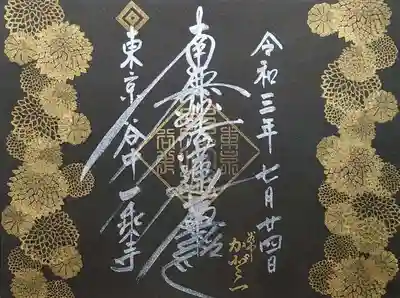 令和三年 七月廿四日
南無妙法蓮華經
東京谷中 一乗寺